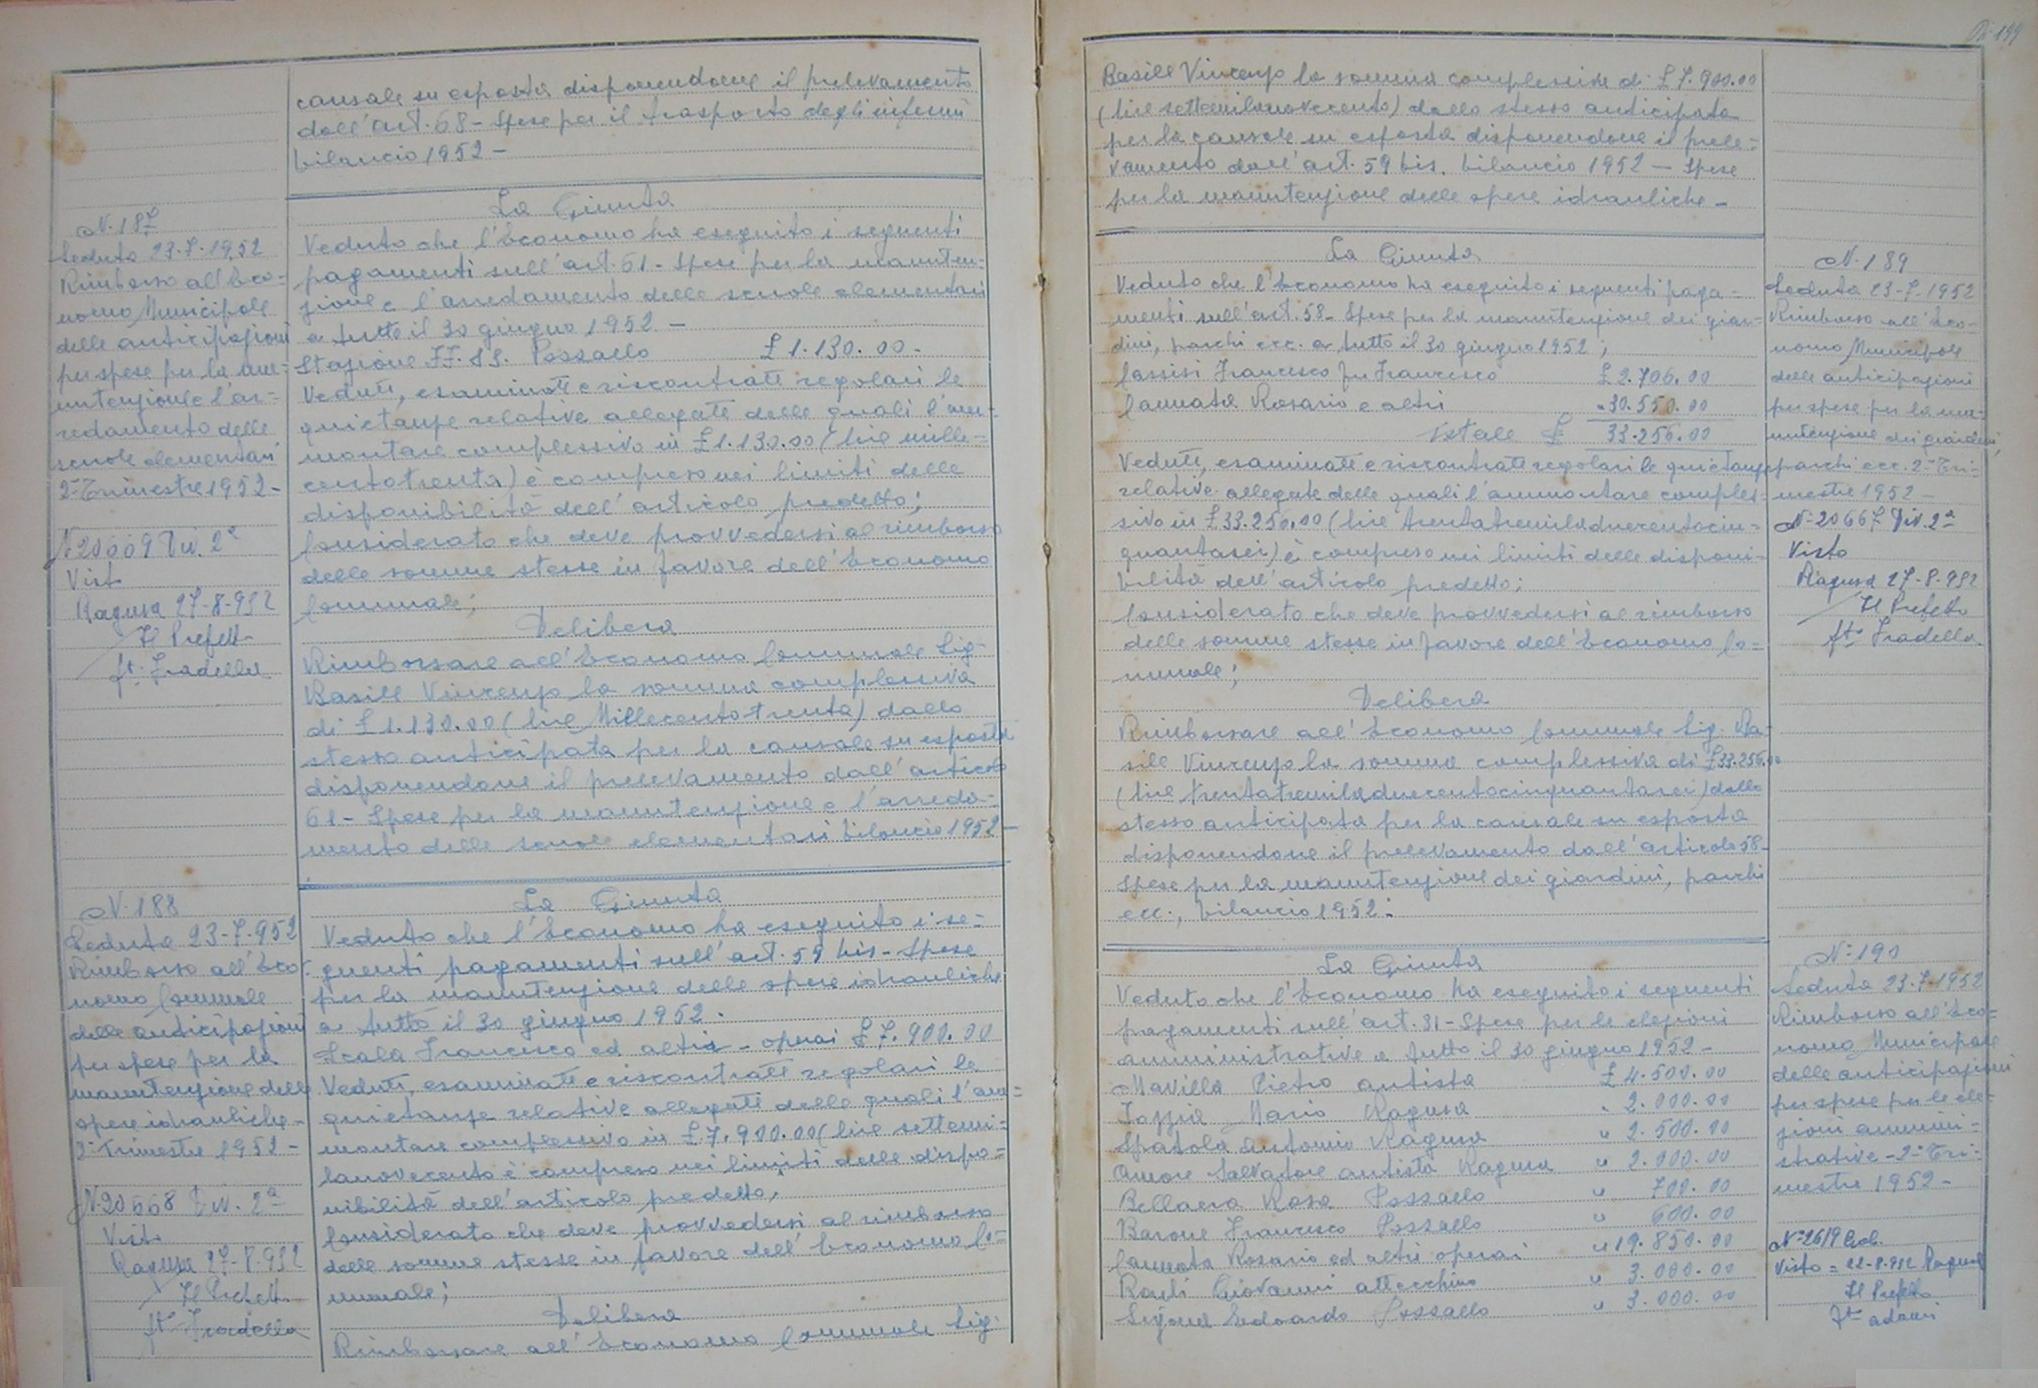 causale su esposta disponendone il prelevamento
dall'art. 68 - Spese per il trasporto degli infermi
bilancio 1952 -
N. 187
Seduta 23-7-1952
Rimborso all'Eco-
nomo Municipale
delle anticipazioni
per spese per la ma-
nutenzione e l'ar-
redamento delle
scuole elementari
2° Trimestre 1952 -
N 20669 Div. 2ª
Visto
Ragusa 27-8-952
Il Prefetto
fto
La Giunta
Veduto che l'Economo ha eseguito i seguenti
pagamenti sull'art. 61 - Spese per la manuten-
zione e l'arredamento delle scuole elementari
a tutto il 30 giugno 1952 -
Stazione FF. SS. Pozzallo £ 1.130.00 -
Veduti, esaminate e riscontrate regolari le
quietanze relative allegate delle quali l'am-
montare complessivo in £ 1.130.00 (lire mille-
centotrenta) è compreso nei limiti delle
disponibilità dell'articolo predetto;
Considerato che deve provvedersi al rimborso
delle somme stesse in favore dell'Economo
Comunale;
Delibera
Rimborsare all'Economo Comunale Sig.
Basile Vincenzo la somma complessiva
di £ 1.130.00 (lire Millecento trenta) dallo
stesso anticipata per la causale su esposta
disponendone il prelevamento dall'articolo
61 - Spese per la manutenzione e l'arreda-
mento delle scuole elementari bilancio 1952 -
N. 188
Seduta 23-7-952
Rimborso all'Eco-
nomo Comunale
delle anticipazioni
per spese per la
manutenzione delle
opere idrauliche -
2° Trimestre 1952 -
N. 20668 Div. 2ª
Visto
Ragusa 27-8-952
Il Prefetto
fto
La Giunta
Veduto che l'Economo ha eseguito i se-
guenti pagamenti sull'art. 59 bis - Spese
per la manutenzione delle opere idrauliche
a tutto il 30 giugno 1952.
Scala Francesco ed altri - operai £ 7.900.00
Veduti, esaminate e riscontrate regolari le
quietanze relative allegati delle quali l'am=
montare complessivo in £ 7.900.00 (lire settemi=
lanovecento è compreso nei limiti delle dispo=
nibilità dell'articolo predetto;
Considerato che deve provvedersi al rimborso
delle somme stesse in favore dell'Economo Co=
munale;
Delibera
Rimborsare all'Economo Comunale Sig.
199
Basile Vincenzo la somma complessiva di £ 7.900.00
(lire settemilanovecento) dallo stesso anticipata
per la causale su esposta disponendone il prele=
vamento dall'art. 59 bis. bilancio 1952 - Spese
per la manutenzione delle opere idrauliche -
La Giunta
Veduto che l'Economo ha eseguito i seguenti paga-
menti sull'art. 58 - Spese per la manutenzione dei giar-
dini, parchi ecc. a tutto il 30 giugno 1952;
Cassisi Francesco fu Francesco £ 2.706.00
Cannata Rosario e altri " 30.550.00
Totale £ 33.256.00
Veduti, esaminate e riscontrate regolari le quietanze
relative allegate delle quali l'ammontare comples-
sivo in £ 33.256.00 (lire trentatremiladuecentocin-
quantasei) è compreso nei limiti delle disponi-
bilità dell'articolo predetto;
Considerato che deve provvedersi al rimborso
delle somme stesse in favore dell'Economo Co-
munale;
Delibera
Rimborsare all'Economo Comunale Sig. Ba-
sile Vincenzo la somma complessiva di £ 33.256.00
(lire trentatremiladuecentocinquantasei) dallo
stesso anticipata per la causale su esposta
disponendone il prelevamento dall'articolo 58 -
Spese per la manutenzione dei giardini, parchi
ecc., bilancio 1952.
N. 189
Seduta 23-7-1952
Rimborso all'Eco-
nomo Municipale
delle anticipazioni
per spese per la ma-
nutenzione dei giardini,
parchi ecc. 2° Tri-
mestre 1952 -
N. 20667 Div. 2ª
Visto
Ragusa 27-8-952
Il Prefetto
fto
La Giunta
Veduto che l'Economo ha eseguito i seguenti
pagamenti sull'art. 81 - Spese per le elezioni
amministrative a tutto il 30 giugno 1952 -
Mavilla Pietro autista £ 4.500.00
Mario Ragusa " 2.000.00
Spadola Antonio Ragusa " 2.500.00
Amore Salvatore autista Ragusa " 2.000.00
Rosa Pozzallo " 700.00
Barone Francesco Pozzallo " 600.00
Cannata Rosario ed altri operai " 19.850.00
Giovanni attacchino " 3.000.00
Edoardo Pozzallo " 3.000.00
N° 190
Seduta 23-7-1952
Rimborso all'Eco=
nomo Municipale
delle anticipazioni
per spese per le ele-
zioni ammini=
strative - 2° Tri-
mestre 1952 -
N° 2619 Gab.
Visto = 22-8-952 Ragusa
Il Prefetto
fto